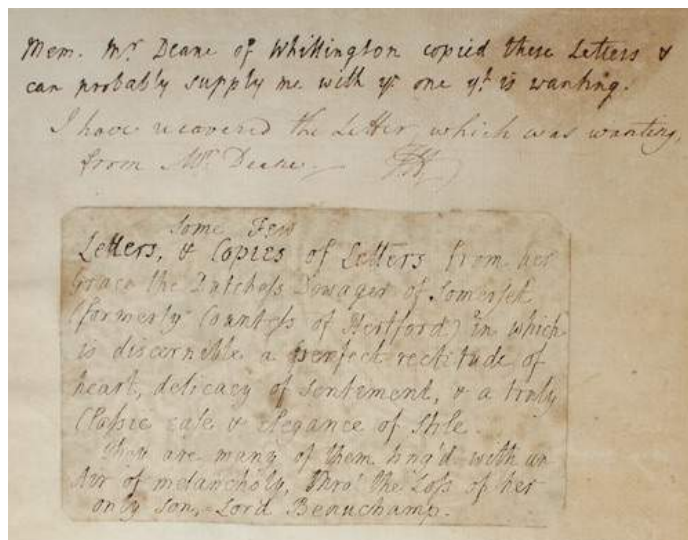 Mem. Mr Deane of Whittington copied these Letters &
can probably supply me with ye one yt is wanting.
I have recovered the Letter, which was wanting,
from Mr Deane.
Some Few
Letters, & Copies of Letters from her
Grace the Dutchess Dowager of Somerset
(formerly Countess of Hertford) in which
is discernible a perfect rectitude of
heart, delicacy of sentiment, & a truly
Classic ease & elegance of Stile.
They are many of them ting'd with an
Air of melancholy, thro' the Loss of her
only son, Lord Beauchamp.